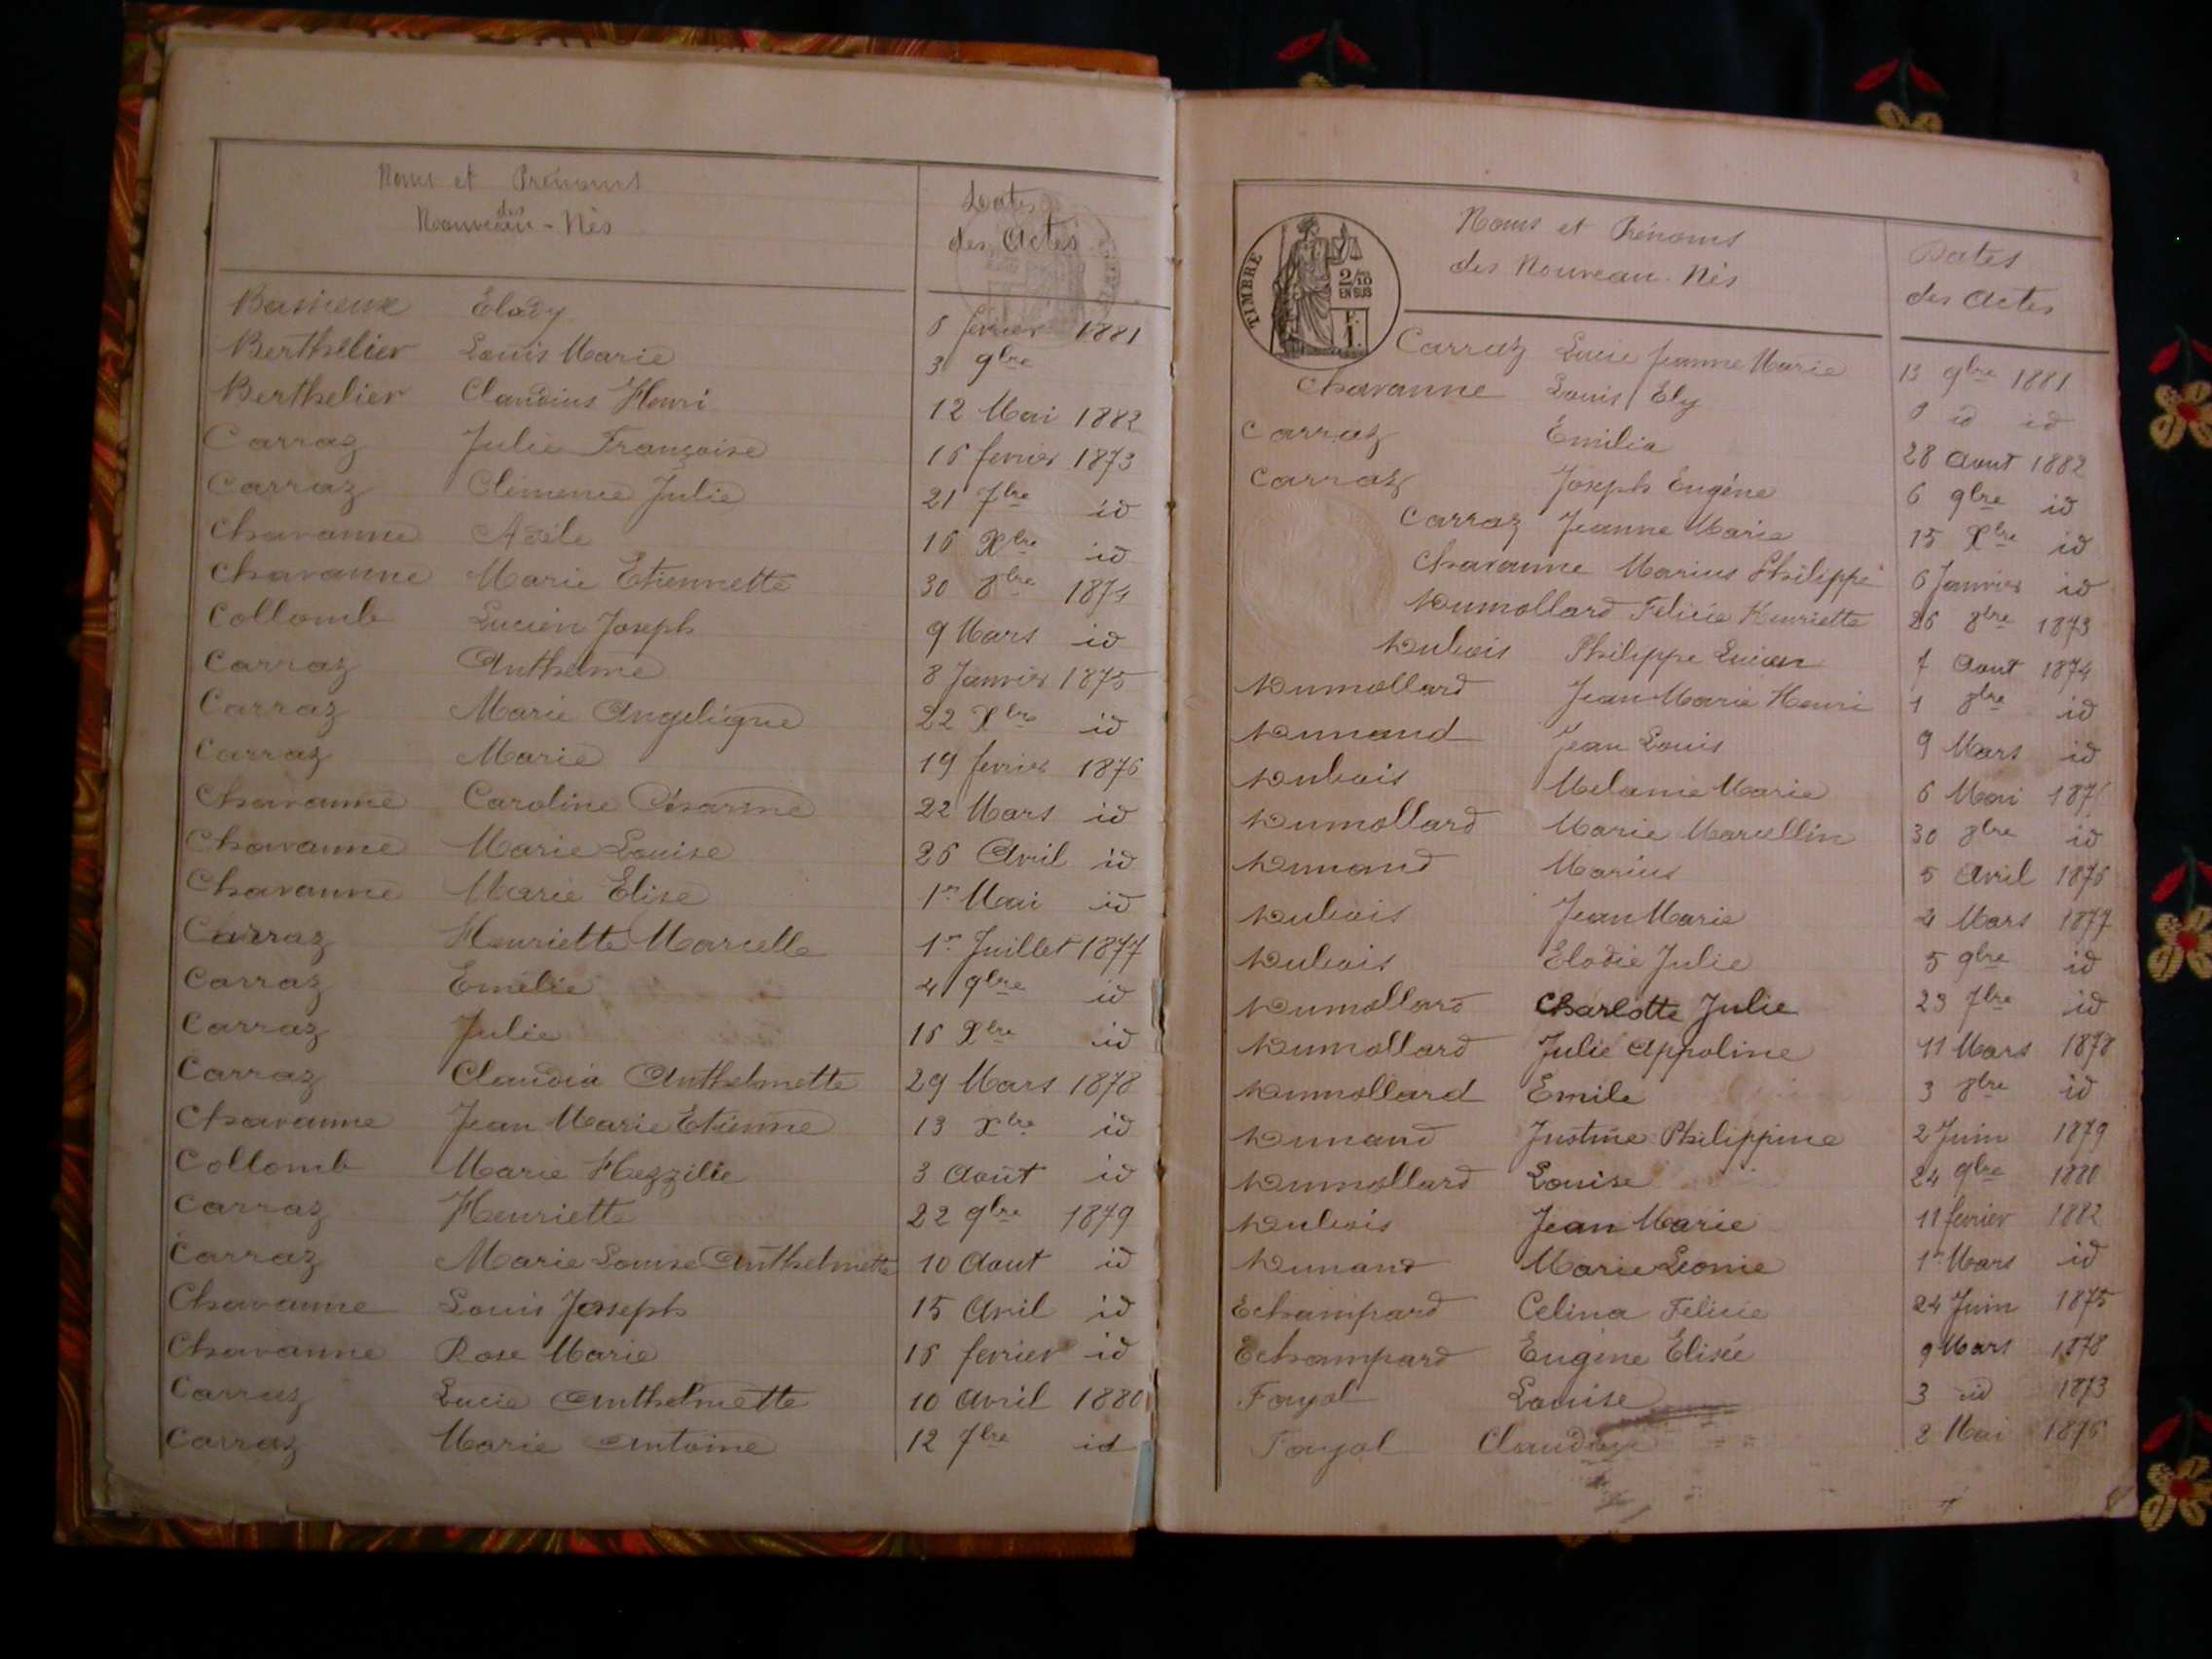 Noms et Prénoms
des
Nouveau-Nés
Dates
des Actes
Bassieux Elody 8 fevrier 1881
Berthelier Louis Marie 3 9bre
Berthelier Claudius Henri 12 Mai 1882
Carraz Julie Françoise 16 fevrier 1873
Carraz Clémence Julie 21 7bre id
Chavanne Adèle 16 Xbre id
Chavanne Marie Etiennette 30 8bre 1874
Collomb Lucien Joseph 9 Mars id
Carraz Anthelme 8 Janvier 1875
Carraz Marie Angelique 22 Xbre id
Carraz Marie 19 fevrier 1876
Chavanne Caroline Césarine 22 Mars id
Chavanne Marie Louise 26 Avril id
Chavanne Marie Elise 1er Mai id
Carraz Henriette Marcelle 1er Juillet 1877
Carraz Emélie 4 9bre id
Carraz Julie 16 Xbre id
Carraz Claudia Anthelmette 29 Mars 1878
Chavanne Jean Marie Etienne 13 Xbre id
Collomb Marie Hezzilie 3 Août id
Carraz Henriette 22 9bre 1879
Carraz Marie Louise Anthelmette 10 Aout id
Chavanne Louis Joseph 15 Avril id
Chavanne Rose Marie 16 fevrier id
Carraz Lucie Anthelmette 10 Avril 1880
Carraz Marie Antoine 12 7bre id
TIMBRE
2/10
EN SUS
F.
1.
Noms et Prénoms
des Nouveau-Nés
Dates
des Actes
Carraz Lucie Jeanne Marie 13 9bre 1881
Chavanne Louis Ely 8 id id
Carraz Émilia 28 Aout 1882
Carraz Joseph Eugéne 6 9bre id
Carraz Jeanne Marie 15 Xbre id
Chavanne Marius Philippe 6 Janvier id
Dumollard Felicie Henriette 26 8bre 1873
Dubois Philippe Lucien 7 Aout 1874
Dumollard Jean Marie Henri 1 8bre id
Dunand Jean Louis 9 Mars id
Dubois Melanie Marie 6 Mai 187
Dumollard Marie Marcellin 30 8bre id
Dunand Marius 5 Avril 1876
Dubois Jean Marie 4 Mars 1877
Dubois Elodie Julie 5 9bre id
Dumollard Charlotte Julie 23 7bre id
Dumollard Julie Appoline 11 Mars 1878
Dumollard Emile 3 8bre id
Dunand Justine Philippine 2 Juin 1879
Dumollard Louise 24 9bre 1880
Dubois Jean Marie 11 fevrier 1882
Dunand Marie Leonie 1er Mars id
Echampard Celina Felicie 24 Juin 1875
Echampard Eugéne Elisée 9 Mars 1878
Fayol Louise 3 id 1873
Fayol 2 Mai 1876